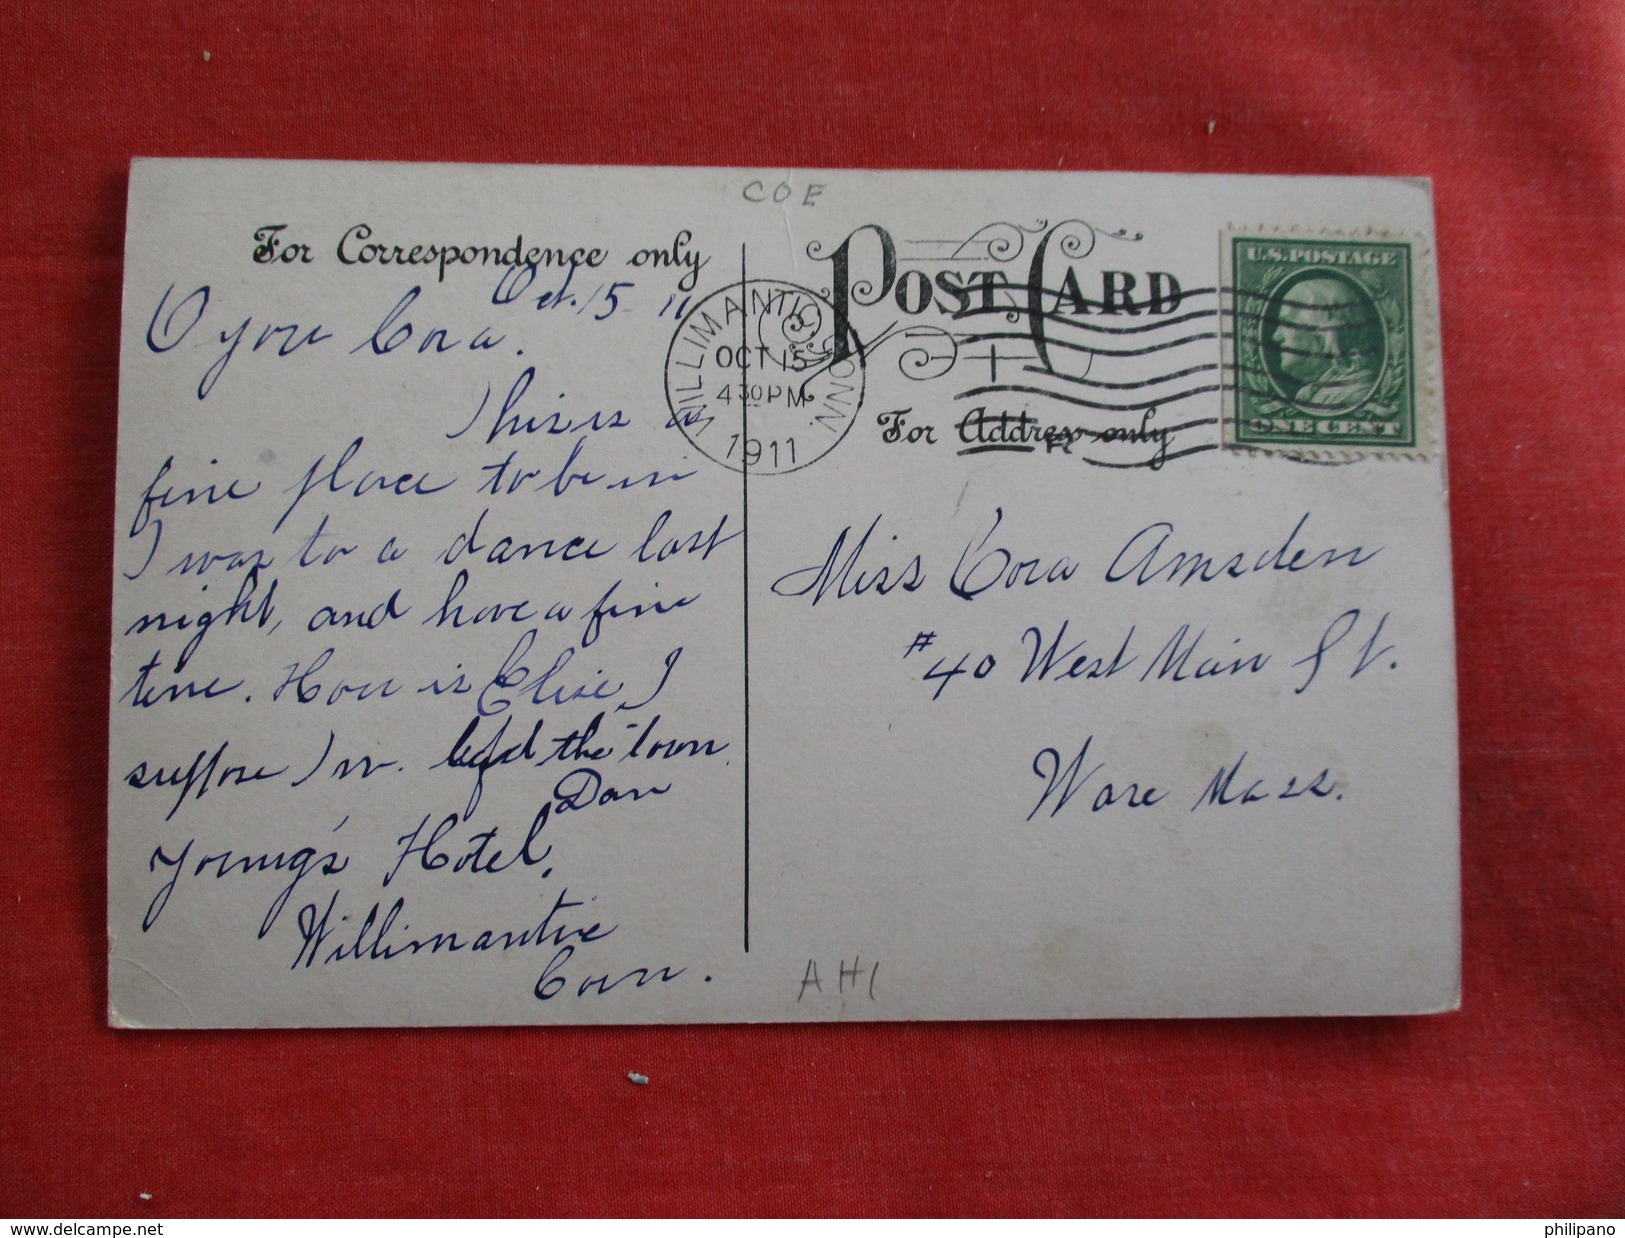 COE
For Correspondence only
Oct. 15 - 11
O you Cora.
This is a
fine place to be in
I was to a dance last
night, and have a fine
time. How is Elise, I
suppose I'm the town
Dan
Young's Hotel,
Willimantic
Conn.
WILLIMANTIC CONN.
OCT 15
4 30 PM
1911
POST CARD
For Address only
U.S. POSTAGE
ONE CENT
Miss Cora Amsden
#40 West Main St.
Ware Mass.
AH1
delcampe.net
philipano